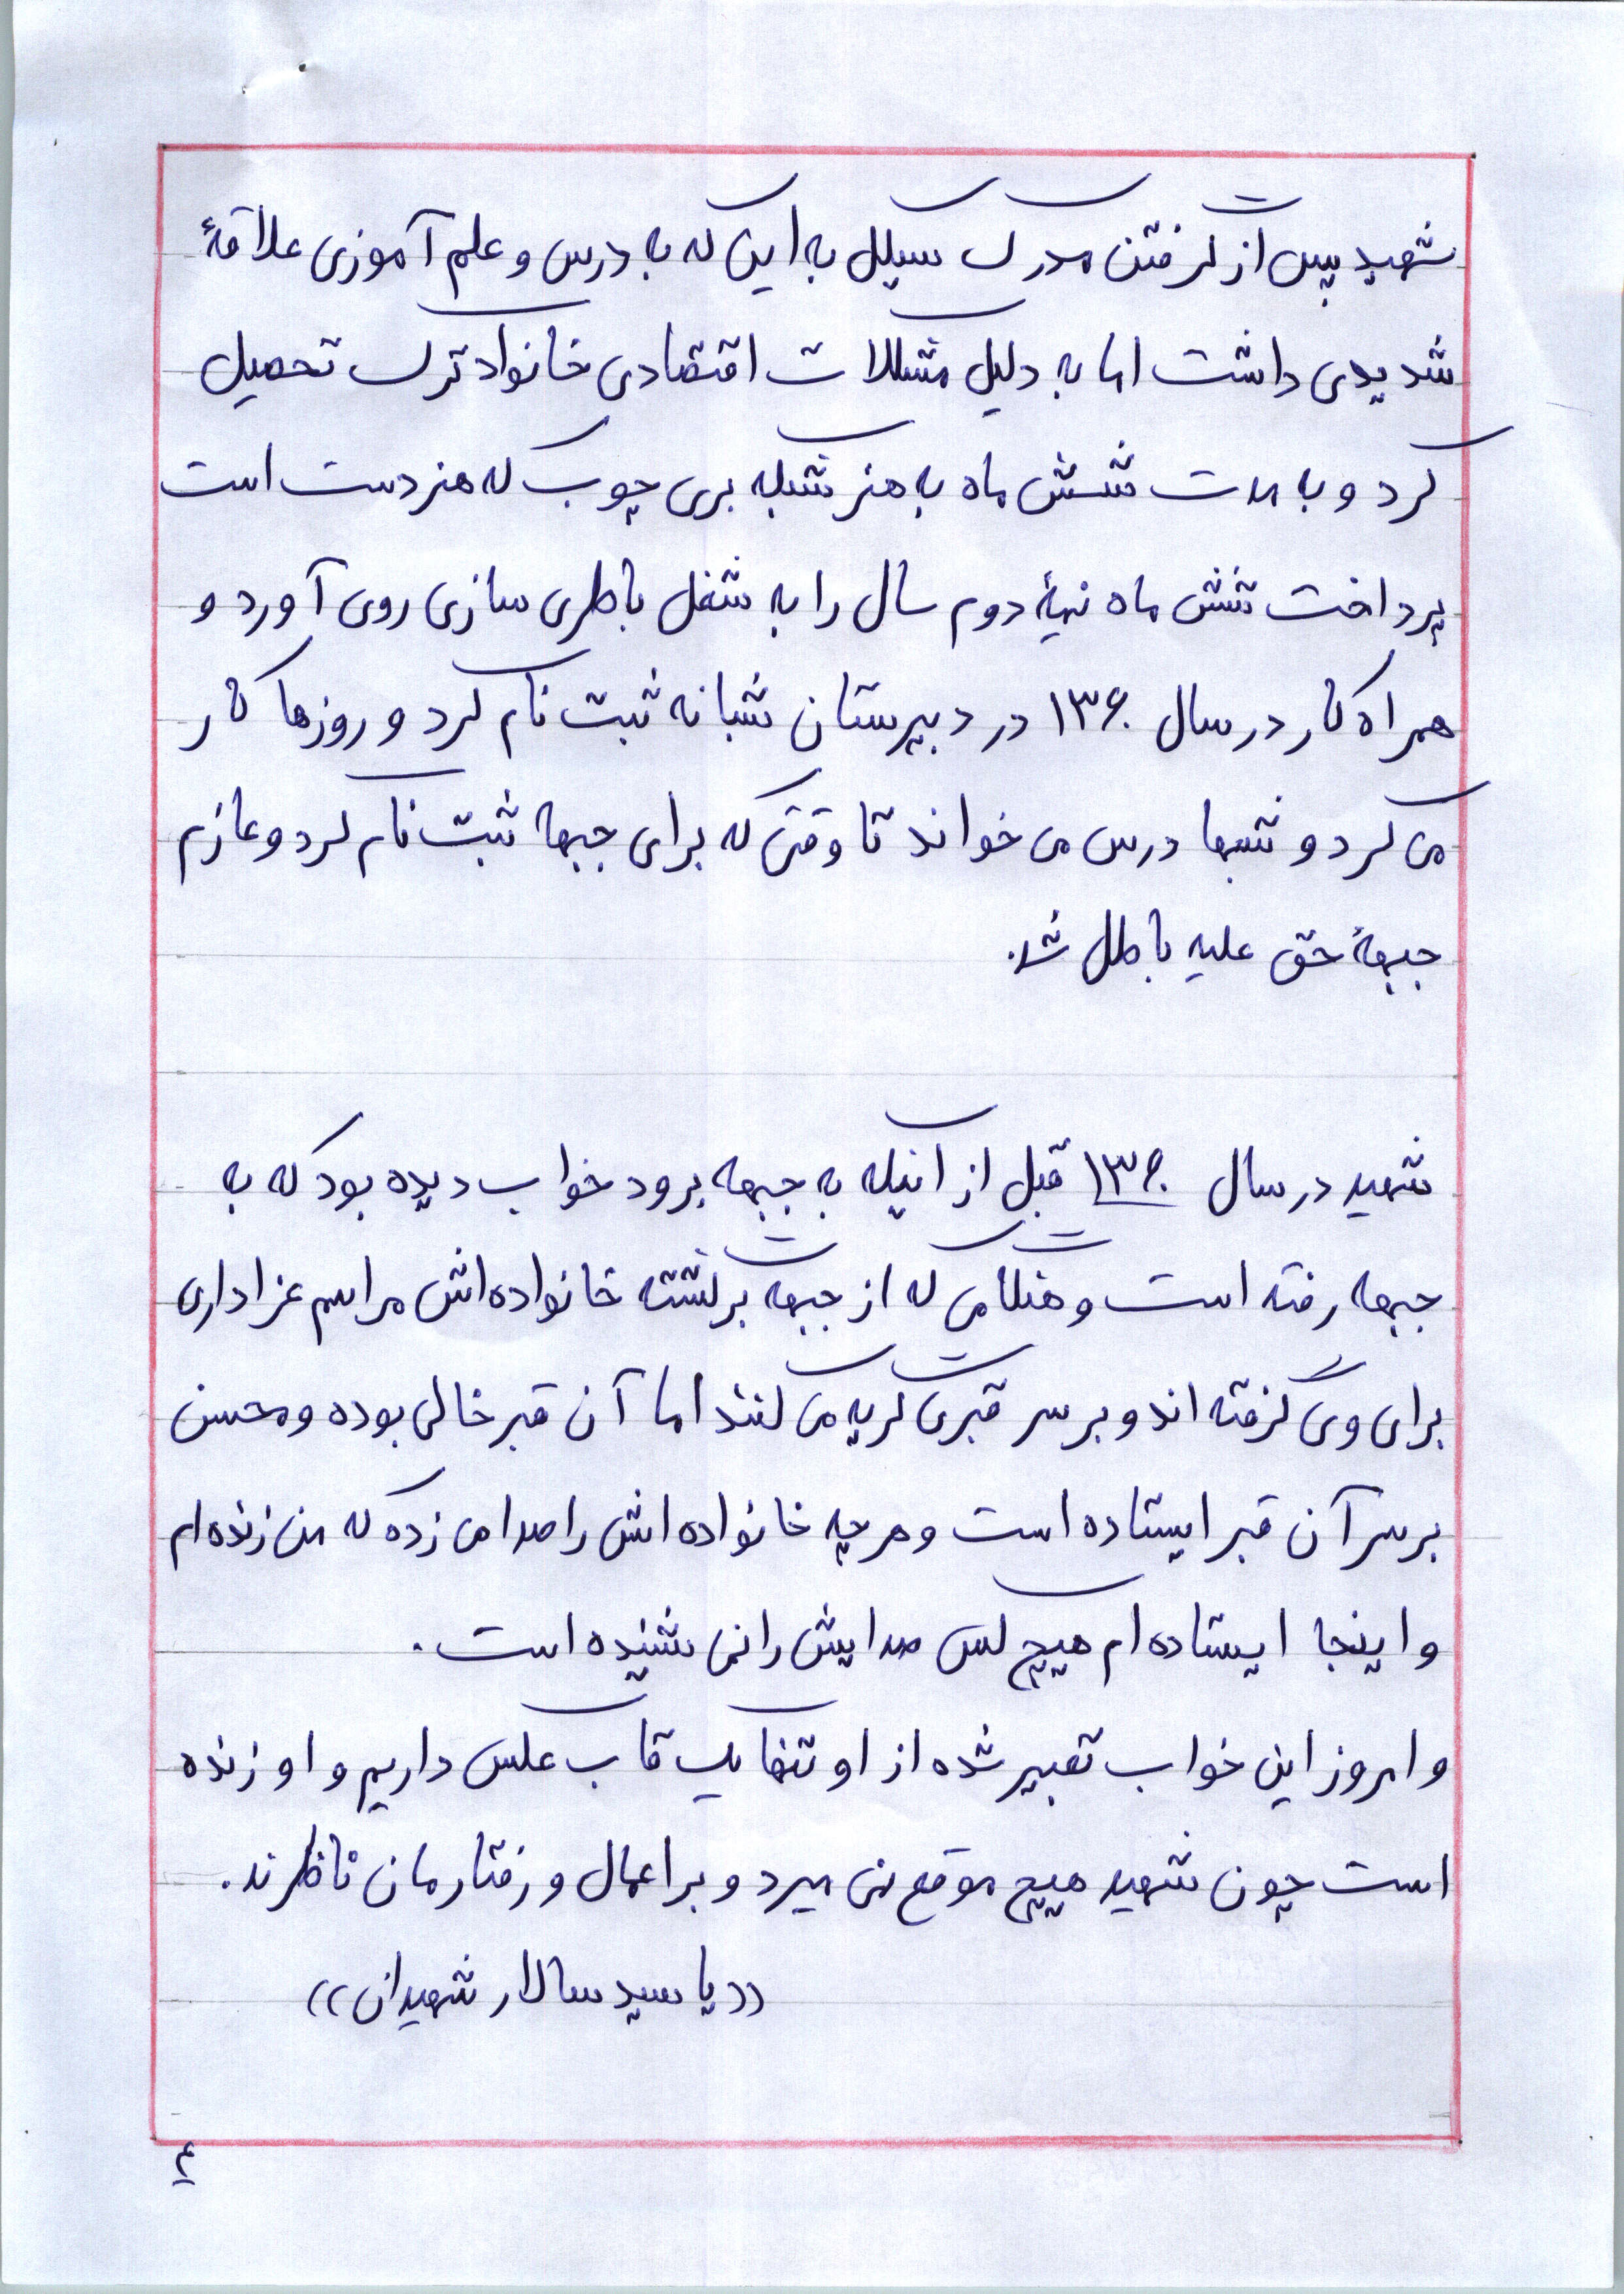 شهید پس از گرفتن مدرک سیکل به این که به درس و علم آموزی علاقهٔ
شدیدی داشت اما به دلیل مشکلات اقتصادی خانواد ترک تحصیل
کرد و به مدت شش ماه به هنر شبکه بری چوب که هنر دست است
پرداخت شش ماه نیمهٔ دوم سال را به شغل باطری سازی روی آورد و
همراه کار در سال ۱۳۶۰ در دبیرستان شبانه ثبت نام کرد و روزها کار
می کرد و شبها درس می خواند تا وقتی که برای جبهه ثبت نام کرد و عازم
جبههٔ حق علیه باطل شد.
شهید در سال ۱۳۶۰ قبل از اینکه به جبهه برود خواب دیده بود که به
جبهه رفته است و هنگامی که از جبهه برگشته خانواده اش مراسم عزاداری
برای وی گرفته اند و بر سر قبری گریه می کنند اما آن قبر خالی بوده و محسن
بر سر آن قبر ایستاده است و هر چه خانواده اش را صدا می زده که من زنده ام
و اینجا ایستاده ام هیچ کس صدایش را نمی شنیده است.
و امروز این خواب تعبیر شده از او تنها یک قاب عکس داریم و او زنده
است چون شهید هیچ موقع نمی میرد و بر اعمال و رفتارمان ناظرند.
((یا سید سالار شهیدان))
۴